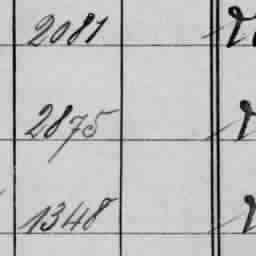 2081
2875
1348